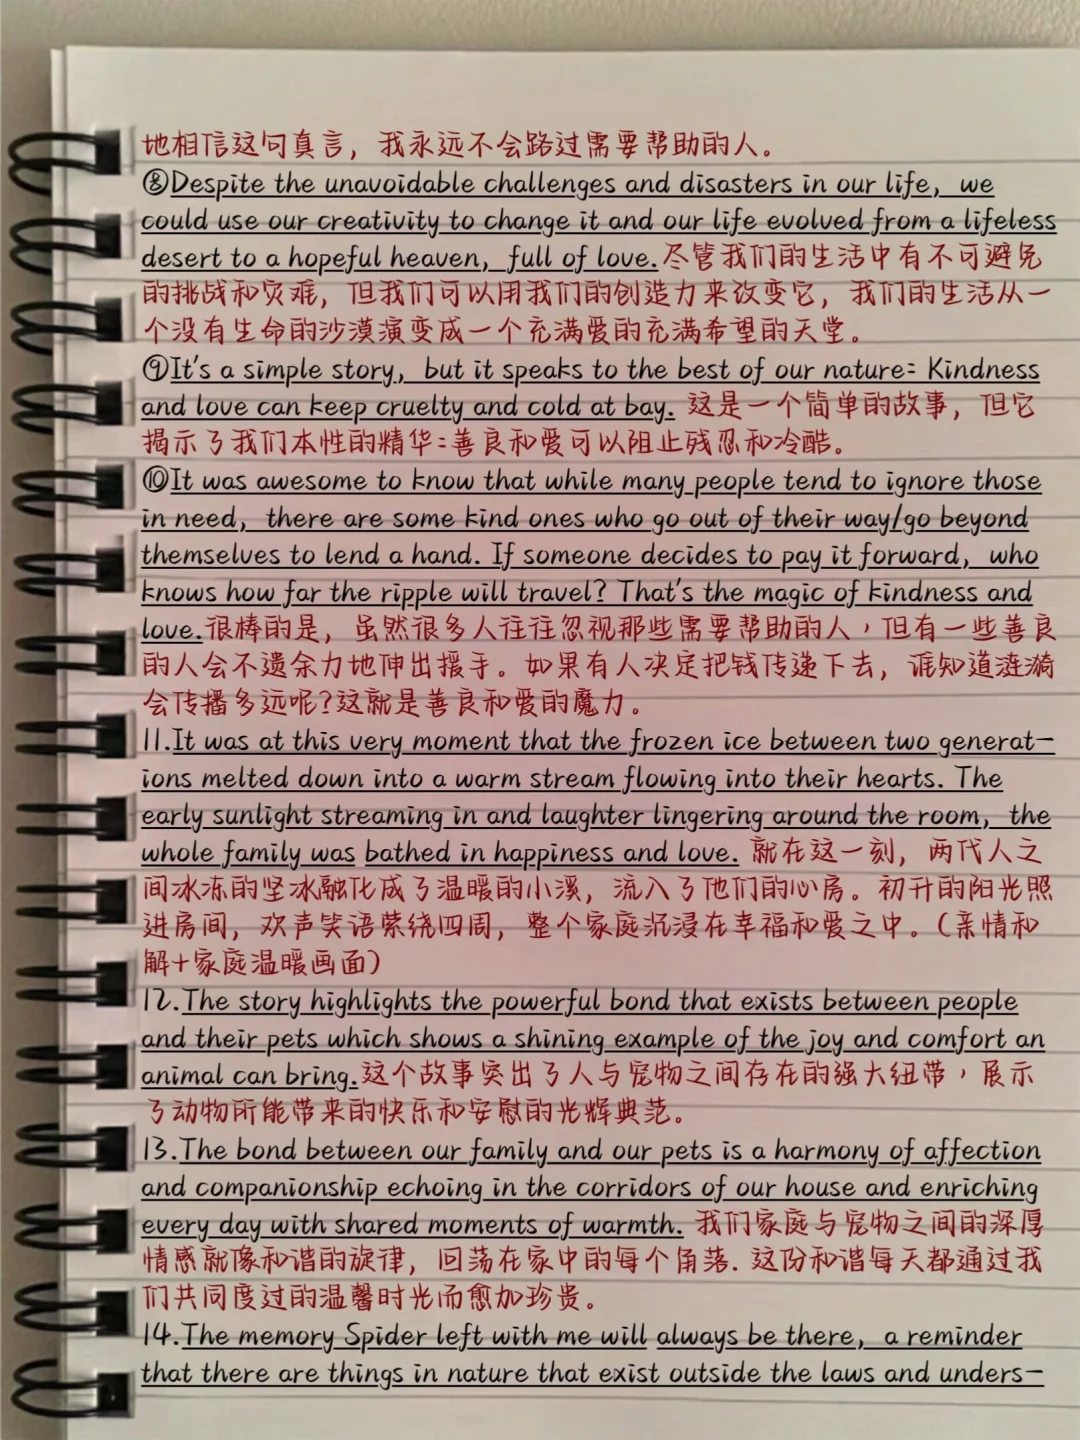 地相信这句真言，我永远不会路过需要帮助的人。
⑧Despite the unavoidable challenges and disasters in our life, we
could use our creativity to change it and our life evolved from a lifeless
desert to a hopeful heaven, full of love.尽管我们的生活中有不可避免
的挑战和灾难，但我们可以用我们的创造力来改变它，我们的生活从一
个没有生命的沙漠演变成一个充满爱的充满希望的天堂。
⑨It's a simple story, but it speaks to the best of our nature: Kindness
and love can keep cruelty and cold at bay. 这是一个简单的故事，但它
揭示了我们本性的精华:善良和爱可以阻止残忍和冷酷。
⑩It was awesome to know that while many people tend to ignore those
in need, there are some kind ones who go out of their way/go beyond
themselves to lend a hand. If someone decides to pay it forward, who
knows how far the ripple will travel? That's the magic of kindness and
love.很棒的是，虽然很多人往往忽视那些需要帮助的人，但有一些善良
的人会不遗余力地伸出援手。如果有人决定把钱传递下去，谁知道涟漪
会传播多远呢?这就是善良和爱的魔力。
11.It was at this very moment that the frozen ice between two generat-
ions melted down into a warm stream flowing into their hearts. The
early sunlight streaming in and laughter lingering around the room, the
whole family was bathed in happiness and love. 就在这一刻，两代人之
间冰冻的坚冰融化成了温暖的小溪，流入了他们的心房。初升的阳光照
进房间，欢声笑语萦绕四周，整个家庭沉浸在幸福和爱之中。(亲情和
解+家庭温暖画面)
12.The story highlights the powerful bond that exists between people
and their pets which shows a shining example of the joy and comfort an
animal can bring.这个故事突出了人与宠物之间存在的强大纽带，展示
了动物所能带来的快乐和安慰的光辉典范。
13.The bond between our family and our pets is a harmony of affection
and companionship echoing in the corridors of our house and enriching
every day with shared moments of warmth. 我们家庭与宠物之间的深厚
情感就像和谐的旋律，回荡在家中的每个角落. 这份和谐每天都通过我
们共同度过的温馨时光而愈加珍贵。
14.The memory Spider left with me will always be there, a reminder
that there are things in nature that exist outside the laws and unders-